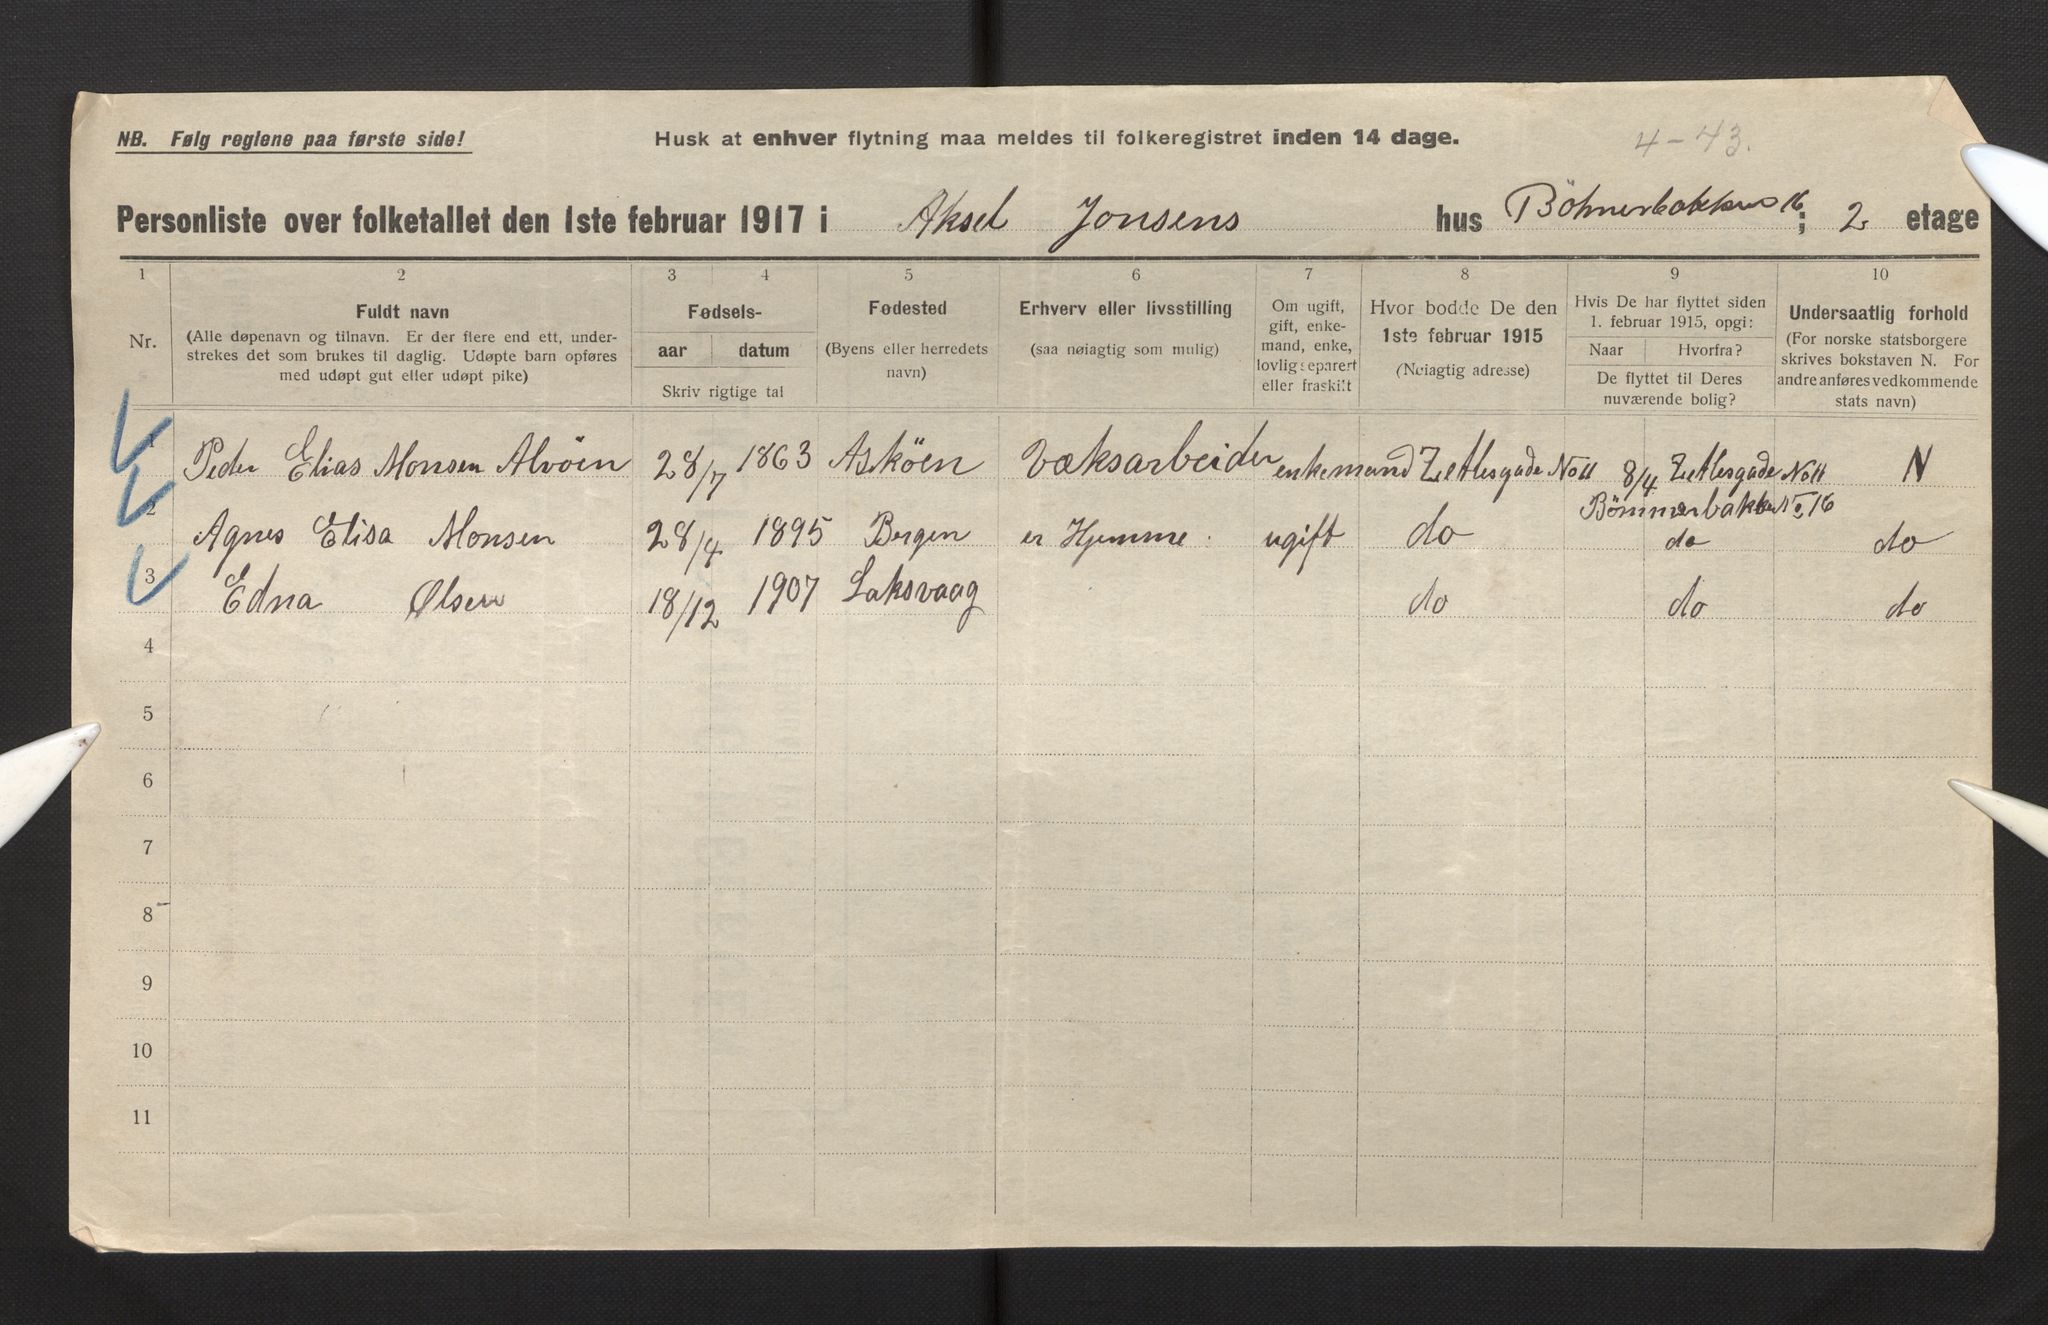 NB. Følg reglene paa første side!
Husk at enhver flytning maa meldes til folkeregistret inden 14 dage.
4-43.
Personliste over folketallet den 1ste februar 1917 i Aksel Jonsens hus 16; 2 etage
1 2 3 4 5 6 7 8 9 10
Nr.
Fuldt navn
(Alle døpenavn og tilnavn. Er der flere end ett, under-
strekes det som brukes til daglig. Udøpte barn opføres
med udøpt gut eller udøpt pike)
Fødsels-
aar datum
Skriv rigtige tal
Fødested
(Byens eller herredets
navn)
Erhverv eller livsstilling
(saa nøiagtig som mulig)
Om ugift,
gift, enke-
mand, enke,
lovlig separert
eller fraskilt
Hvor bodde De den
1ste februar 1915
(Nøiagtig adresse)
Hvis De har flyttet siden
1. februar 1915, opgi:
Naar Hvorfra?
De flyttet til Deres
nuværende bolig?
Undersaatlig forhold
(For norske statsborgere
skrives bokstaven N. For
andre anføres vedkommende
stats navn)
1 Peder Elias Monsen Alvöen 28/7 1863 Asköen Væksarbeider enkemand Zetlesgade No 11 8/4 Zetlesgade No 11 N
Bömmerbakken No 16
2 Agnes Elisa Monsen 28/4 1895 Bergen er Hjemme. ugift do do do
3 Edna Ølsen 18/12 1907 Laksvaag do do do
4
5
6
7
8
9
10
11